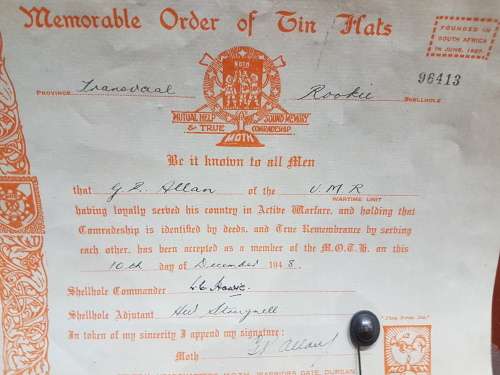 Memorable Order of Tin Hats
FOUNDED IN
SOUTH AFRICA
IN JUNE, 1927.
96413
PROVINCE Transvaal Rookie SHELLHOLE
MOTH
MUTUAL HELP SOUND MEMORY
& TRUE COMRADESHIP
MOTH
Be it known to all Men
that G. E. Allan of the U M R
WARTIME UNIT
having loyally served his country in Active Warfare, and holding that
Comradeship is identified by deeds, and True Remembrance by serving
each other, has been accepted as a member of the M.O.T.H. on this
10th day of December 1948.
Shellhole Commander
Shellhole Adjutant
In token of my sincerity I append my signature :
Moth Allan
GENERAL HEADQUARTERS M.O.T.H. WARRIORS GATE, DURBAN